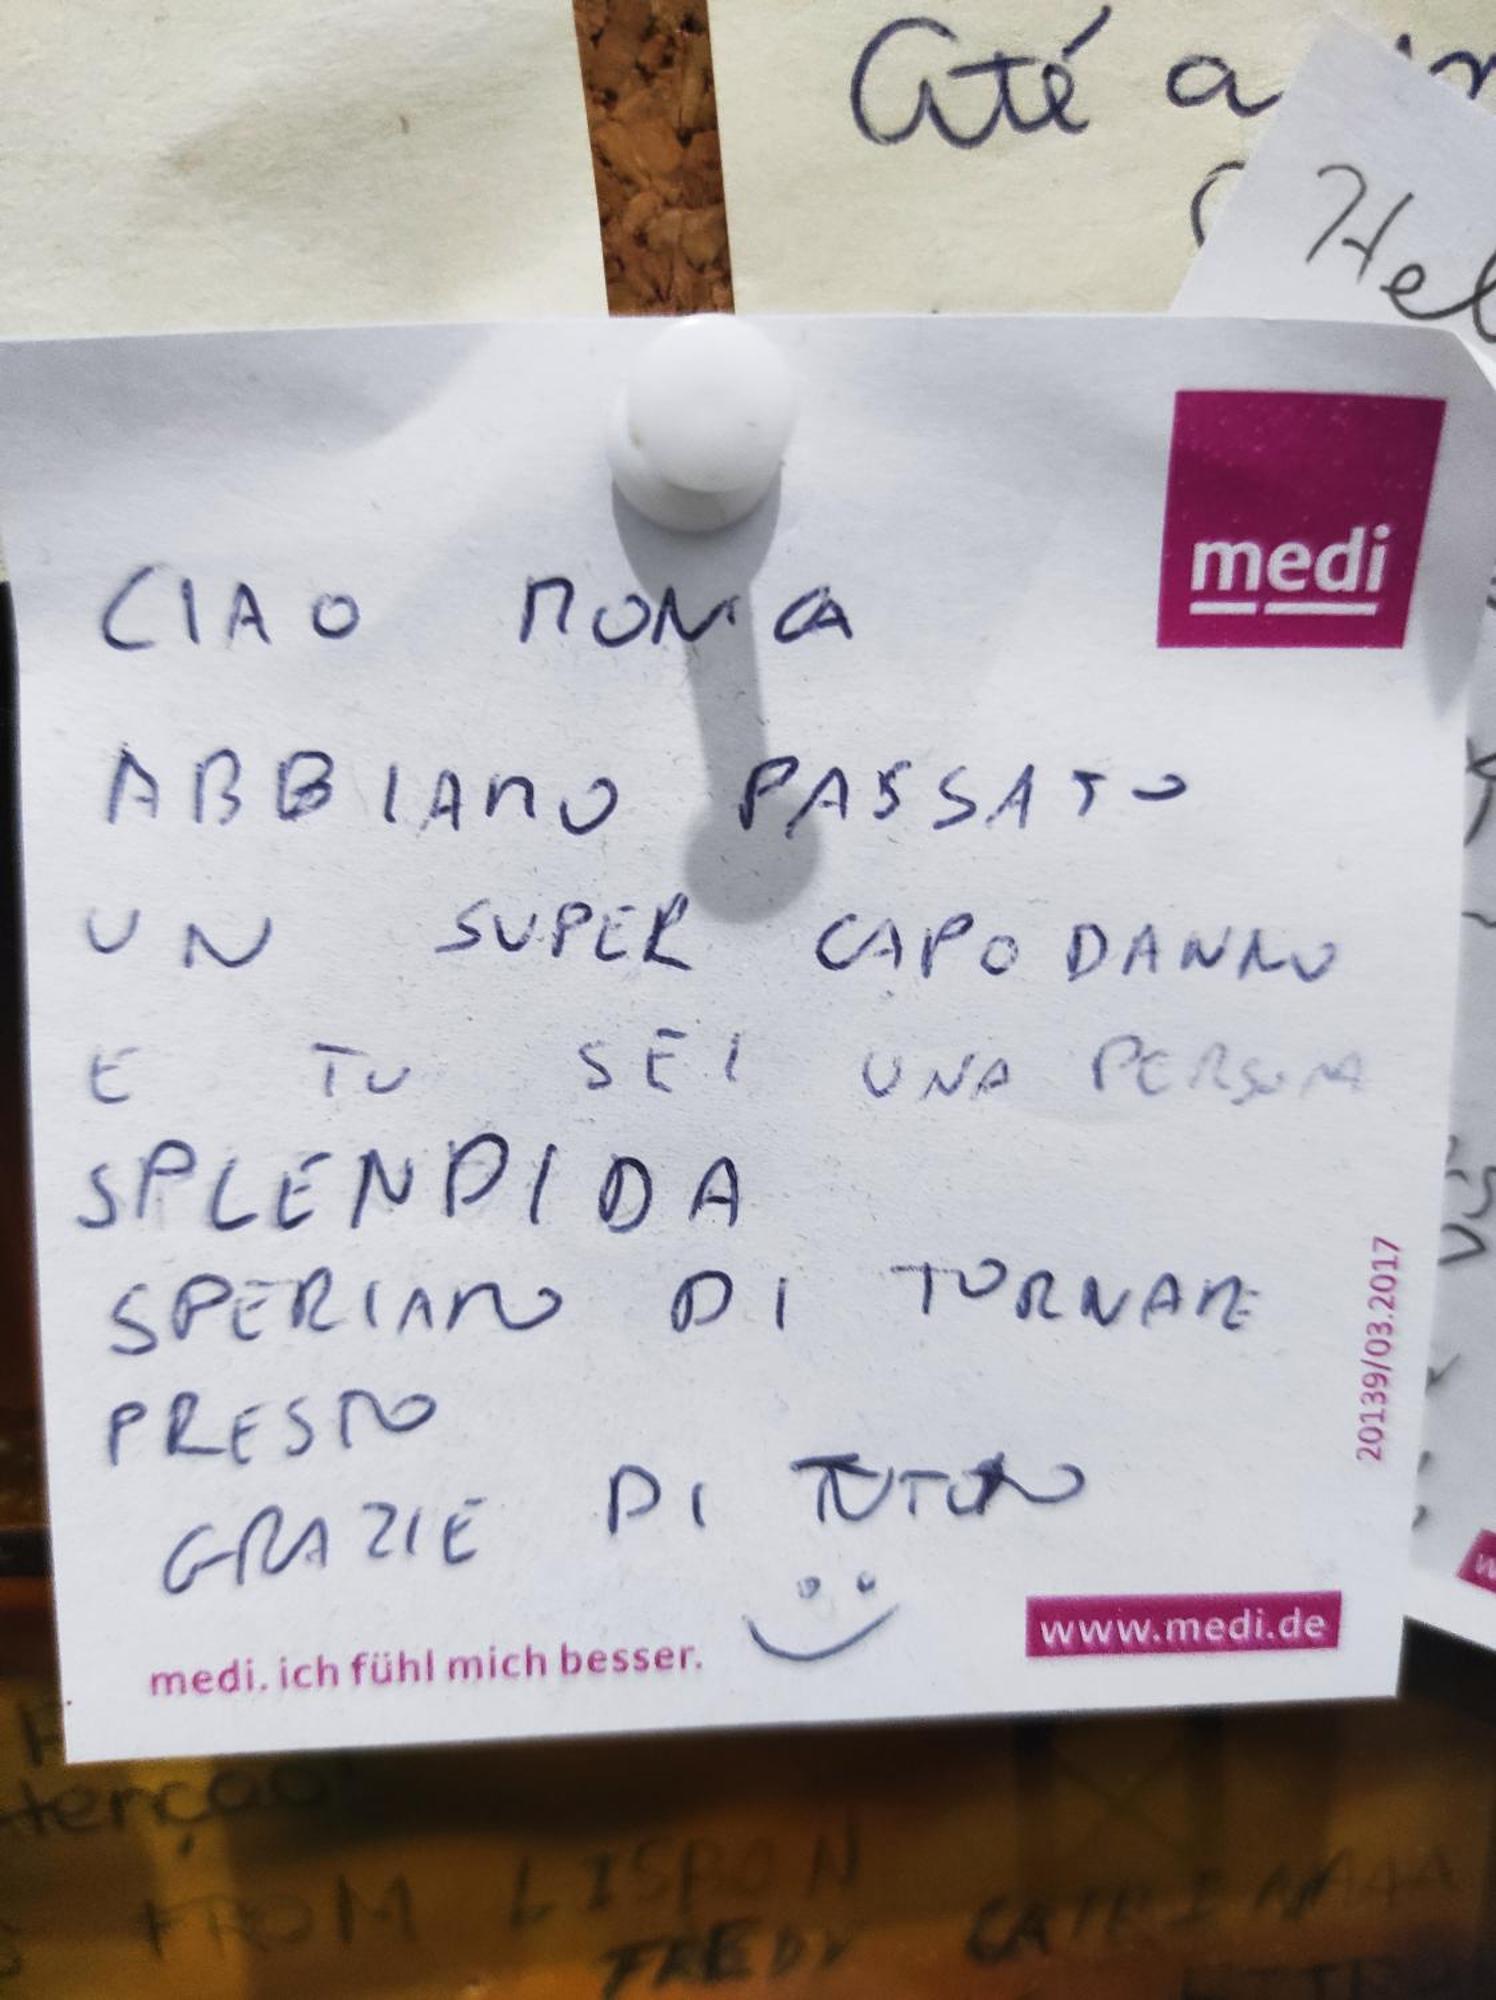 Até a
Hel
medi
CIAO MONICA
ABBIAMO PASSATO
UN SUPER CAPODANNO
E TU SEI UNA PERSONA
SPLENDIDA
SPERIAMO DI TORNARE
PRESTO
GRAZIE DI TUTTO
20139/03.2017
medi. ich fühl mich besser.
www.medi.de
FROM LISBON
FREDY